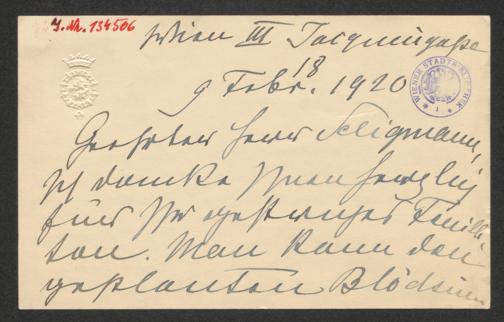 J. N. 134506
Wien III Jacquingasse
18
9 Febr. 1920
WIENER STADTBIBLIOTHEK
Geehrter Herr Seligmann,
Ich danke Ihnen herzlich
für Ihr gestriges Feuille-
ton. Man kann den
geplanten Blödsinn